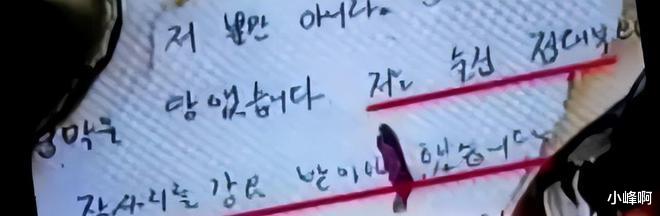 저 뿐만 아니라
당했습니다 저는 술접 접대부
잠자리를 강요 받아야 했습니다
小峰啊